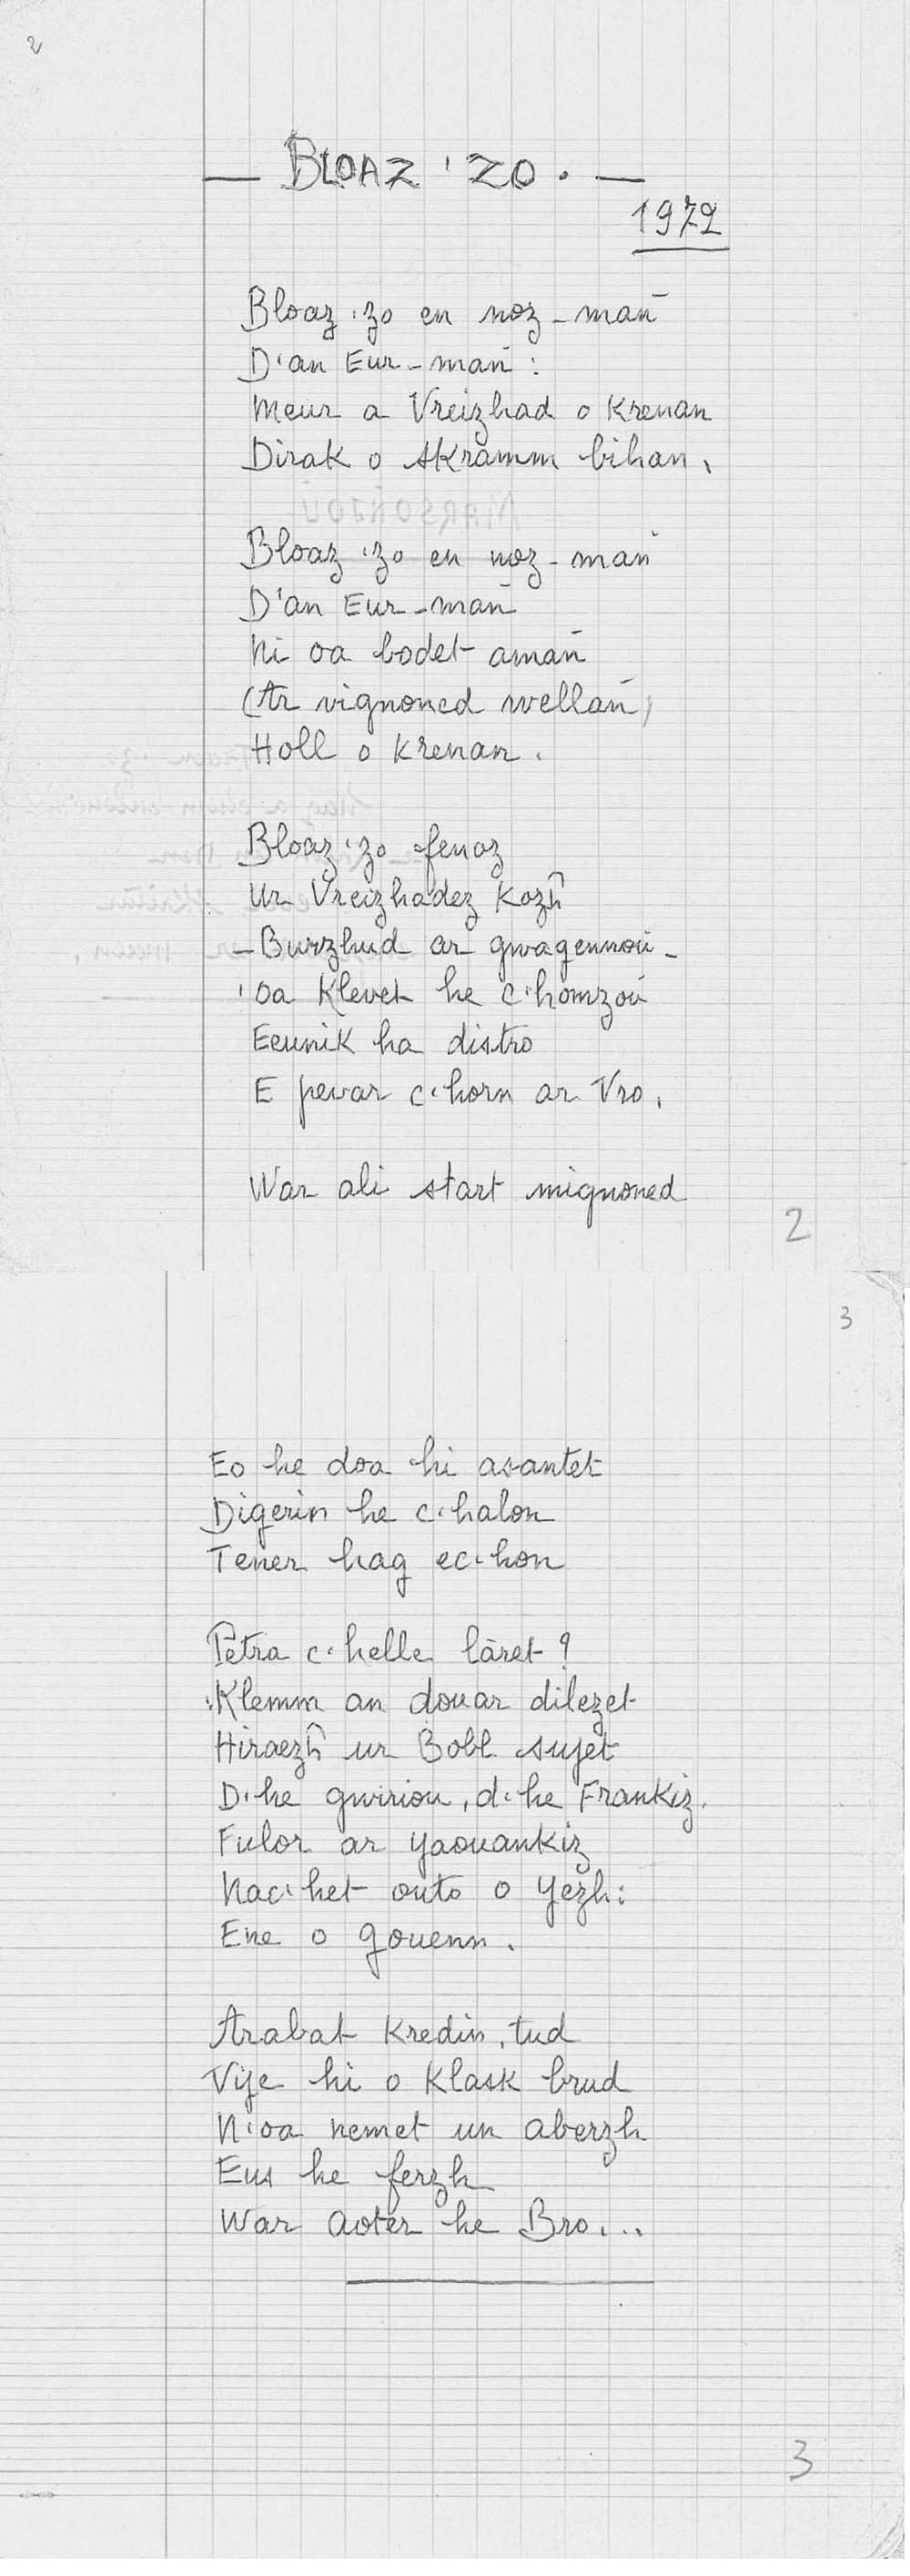 2
— BLOAZ 'ZO. —
1972
Bloaz 'zo en noz-mañ
D'an Eur-mañ :
Meur a Vreizhad o Krenan
Dirak o skramm bihan.
Bloaz 'zo en noz-mañ
D'an Eur-mañ
Ni oa bodet amañ
(Ar vignoned wellañ)
Holl o Krenan.
Bloaz 'zo fenoz
Ur Vreizhadez Kozh
- Burzhud ar gwagennoù -
'Oa Klevet he c'homzoù
Eeunik ha distro
E pevar c'horn ar Vro.
War ali start mignoned
2
3
Eo he doa hi asantet
Digerin he c'halon
Tener hag ec'hon
Petra c'helle lâret ?
Klemm an douar dilezet
Hiraezh ur Bobl sujet
D'he gwiriou, d'he Frankiz.
Fulor ar Yaouankiz
Nac'het outo o Yezh :
Ene o Gouenn.
Arabat Kredin, tud
Vije hi o Klask brud
N'oa nemet un aberzh
Eus he ferzh
War Aoter he Bro...
3